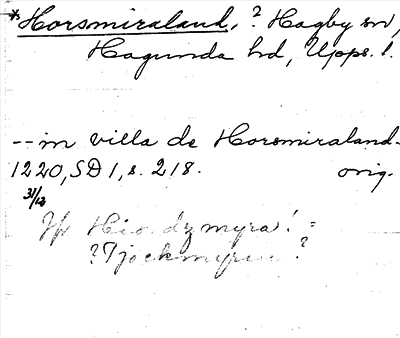 *Horsmiraland, ? Hagby sn,
Hagunda hd, Upps. l.
-- in villa de Horsmiraland -
1220, SD 1, s. 218. orig.
31/12
Jfr Hio dzmyra! =
? Tjockmyran ?